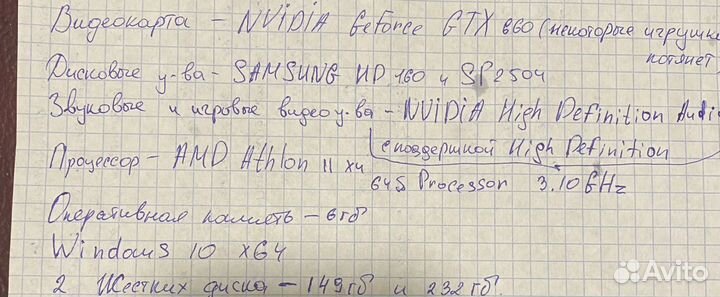 Видеокарта - NVIDIA GeForce GTX 660 (некоторые игрушки
потянет
Дисковые у-ва - SAMSUNG HD 160 и SP2504
Звуковые и игровые видео у-ва - NVIDIA High Definition Audio
с поддержкой High Definition
Процессор - AMD Athlon II x4
645 Processor 3.10 GHz
Оперативная память - 6гб
Windows 10 x64
2 Жестких диска - 149гб и 232гб.
Avito